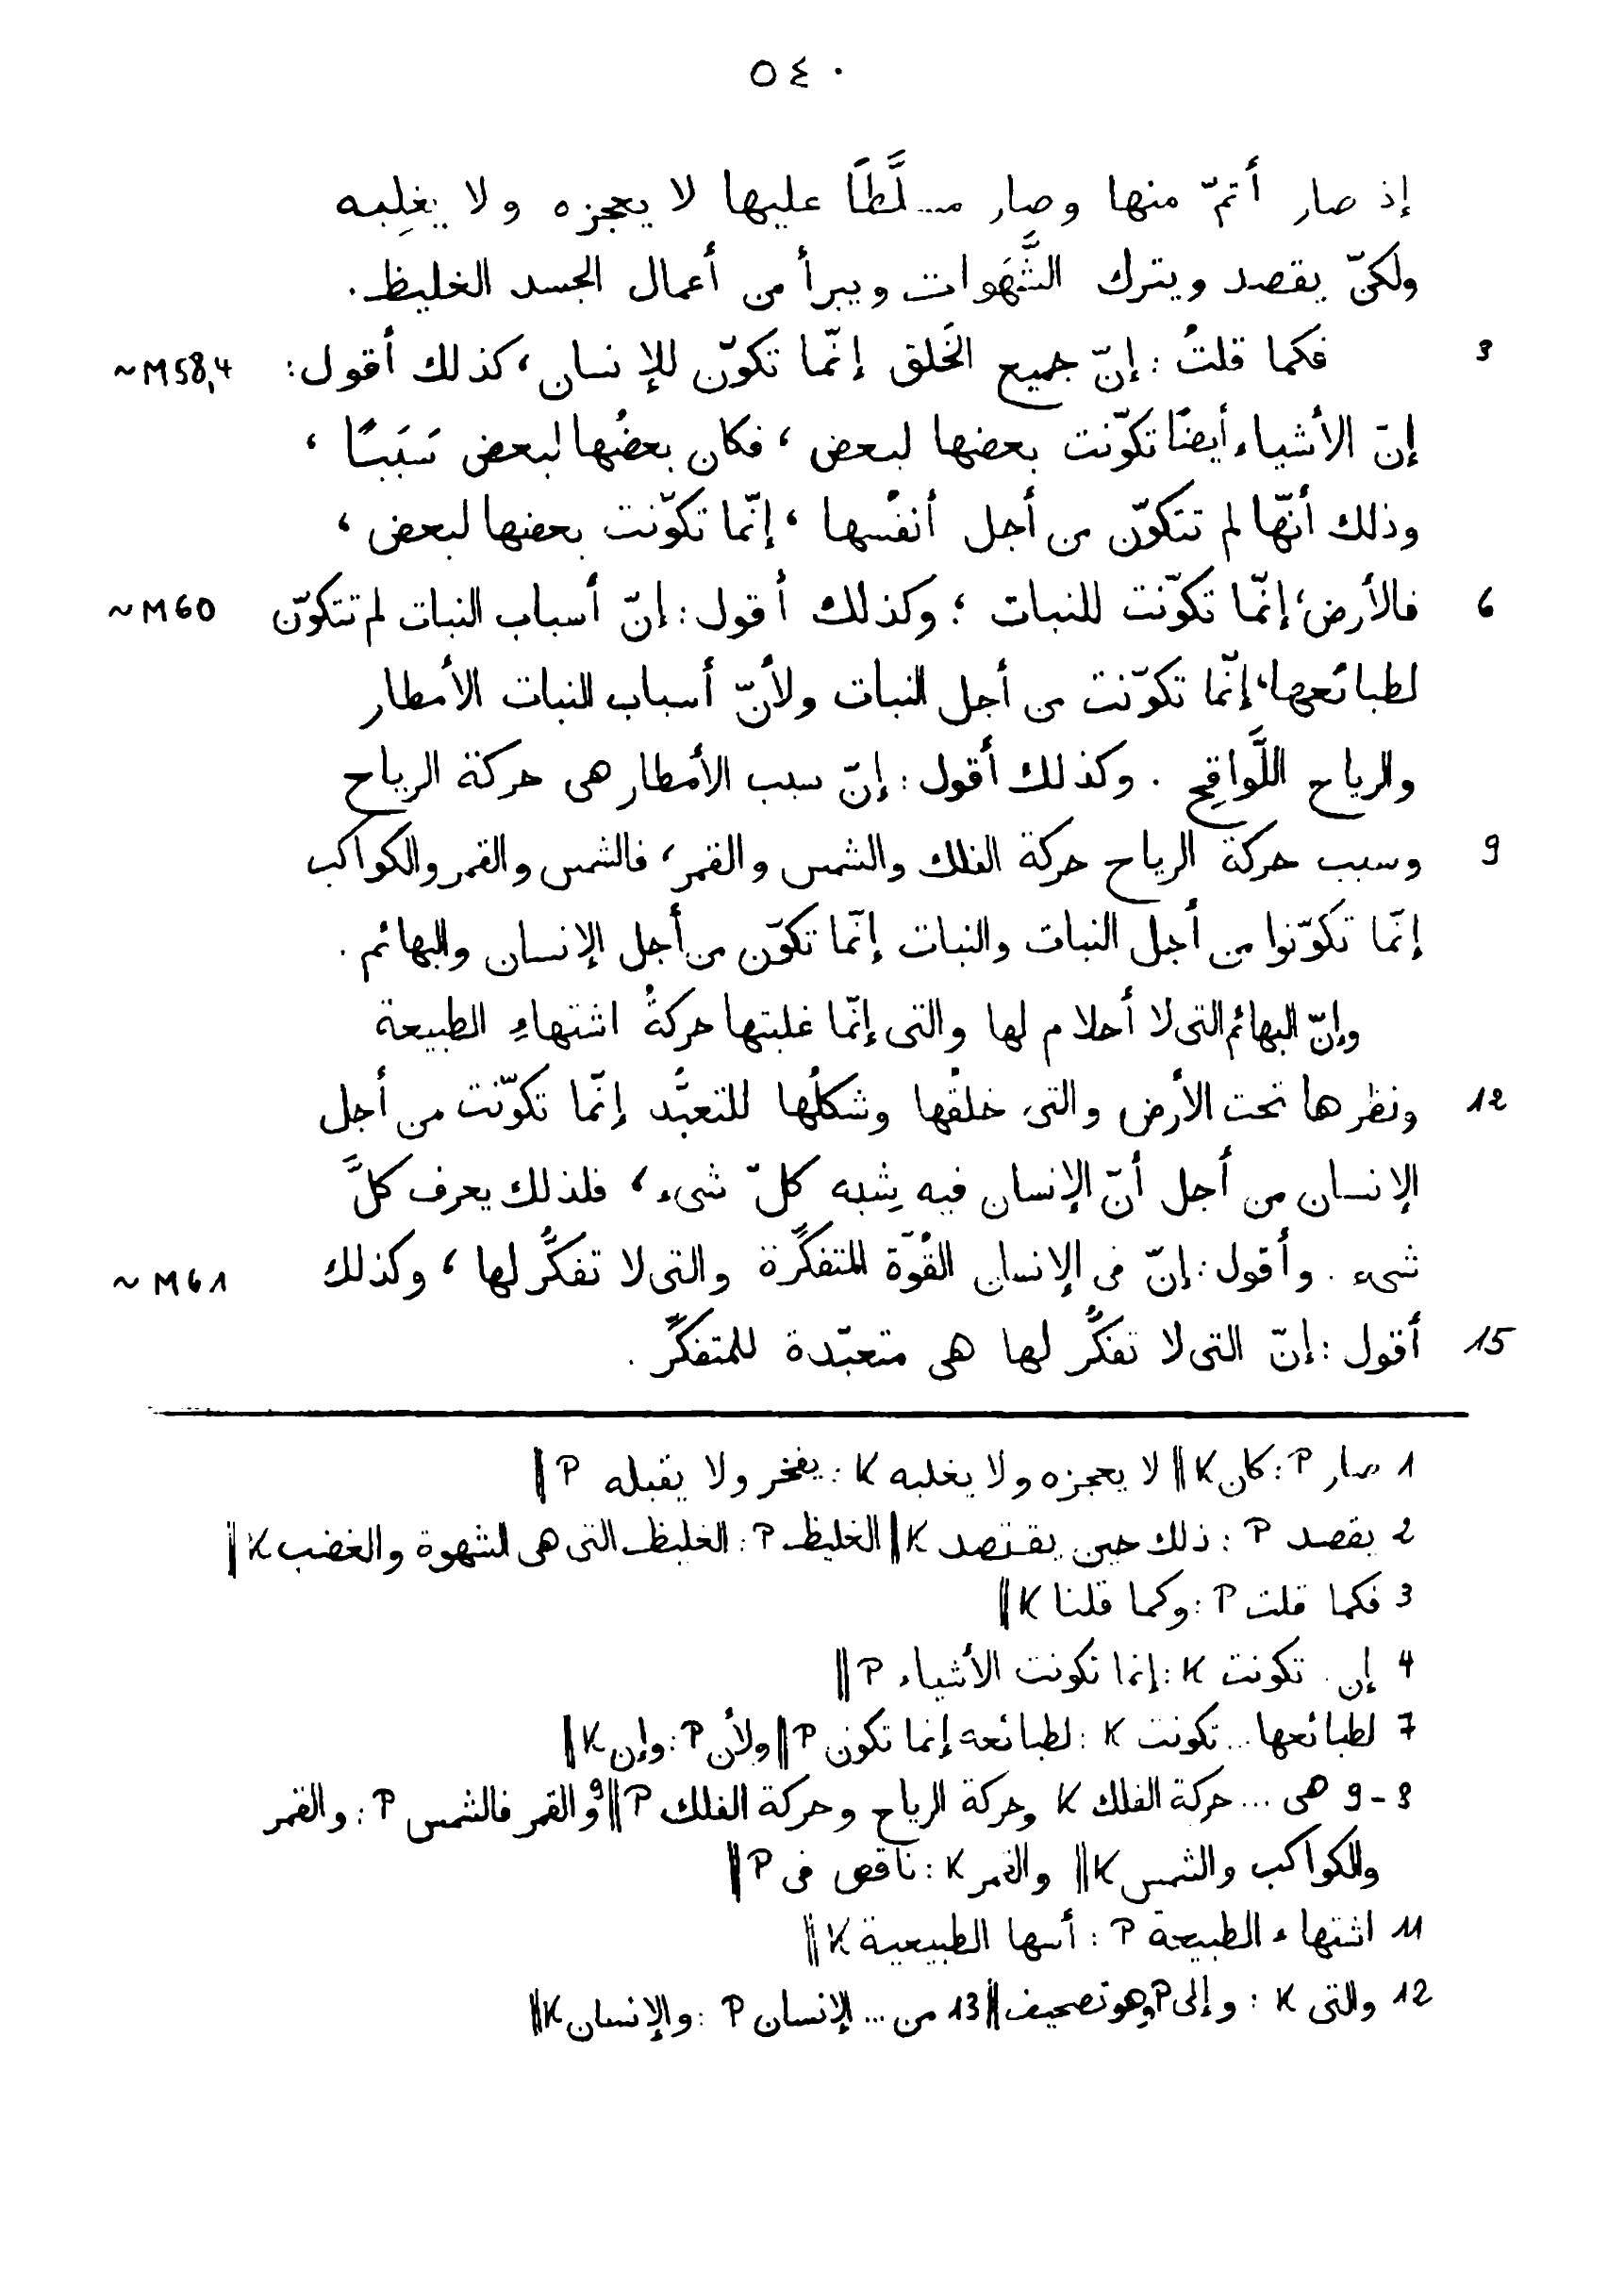 ٥٤٠
إذ صار أتمّ منها وصار مسلَّطًا عليها لا يعجزه ولا يغلِبه
ولكنّ يقصد ويترك الشَّهَوات ويبرأ من أعمال الجسد الغليظ.
3 فكما قلتُ : إنّ جميع الخَلق إنّما تكوّن للإنسان، كذلك أقول: ~M58,4
إنّ الأشياء أيضًا تكوّنت بعضها لبعض، فكان بعضُها لبعض سَبَبًا،
وذلك أنّها لم تتكوّن من أجل أنفُسها، إنّما تكوّنت بعضها لبعض،
6 فالأرض، إنّما تكوّنت للنبات؛ وكذلك أقول: إنّ أسباب النبات لم تتكوّن ~M60
لطبائعها، إنّما تكوّنت من أجل النبات ولأنّ أسباب النبات الأمطار
والرياح اللَّواقِح. وكذلك أقول: إنّ سبب الأمطار هى حركة الرياح
9 وسبب حركة الرياح حركة الفلك والشمس والقمر، فالشمس والقمر والكواكب
إنّما تكوّنوا من أجل النبات والنبات إنّما تكوّن من أجل الإنسان والبهائم.
وإنّ البهائم التى لا أحلام لها والتى إنّما غلبتها حركةُ اشتهاءِ الطبيعة
12 ونظرها تحت الأرض والتى خلقُها وشكلُها للتعبُّد إنّما تكوّنت من أجل
الإنسان من أجل أنّ الإنسان فيه شِبه كلّ شىء، فلذلك يعرف كلَّ
شىء. وأقول: إنّ فى الإنسان القُوّة المتفكِّرة والتى لا تفكُّر لها، وكذلك ~M61
15 أقول: إنّ التى لا تفكُّر لها هى متعبّدة للمتفكِّر.
1 صار P: كان K|| لا يعجزه ولا يغلبه K: يفخر ولا يقبله P||
2 يقصد P: ذلك حين يقتصد K|| الغليظ P: الغليظ التى هى الشهوة والغضب K||
3 فكما قلت P: وكما قلنا K||
4 إن.. تكونت K: إنما تكونت الأشياء P||
7 لطبائعها... تكونت K: لطبائعه إنما تكون P|| ولأن P: وإن K||
8-9 هى ... حركة الفلك K وحركة الرياح وحركة الفلك P||9 والقمر فالشمس P: والقمر
والكواكب والشمس K|| والقمر K: ناقص فى P||
11 اشتهاء الطبيعة P: أسها الطبيعية K||
12 والتى K: وإلى P وهو تصحيف||13 من ... الإنسان P: والإنسان K||